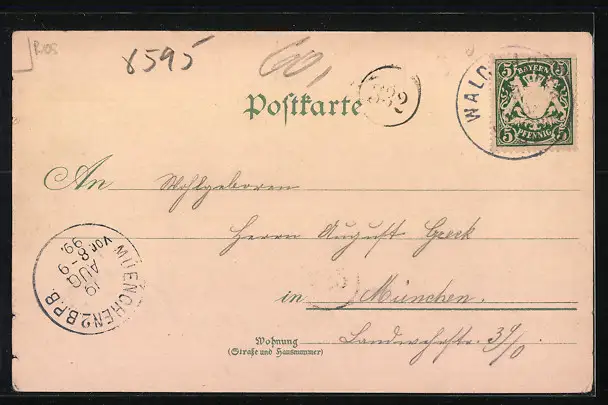 Ros
8595
60,
332
Postkarte
WALC
5 BAYERN 5
5 PFENNIG 5
An Wohlgeboren
Herrn August Greck
in München.
Wohnung Landwehrstr. 39/0
(Straße und Hausnummer)
MUENCHEN 2 B.P.B.
19
AUG
Vor. 8-9
99.